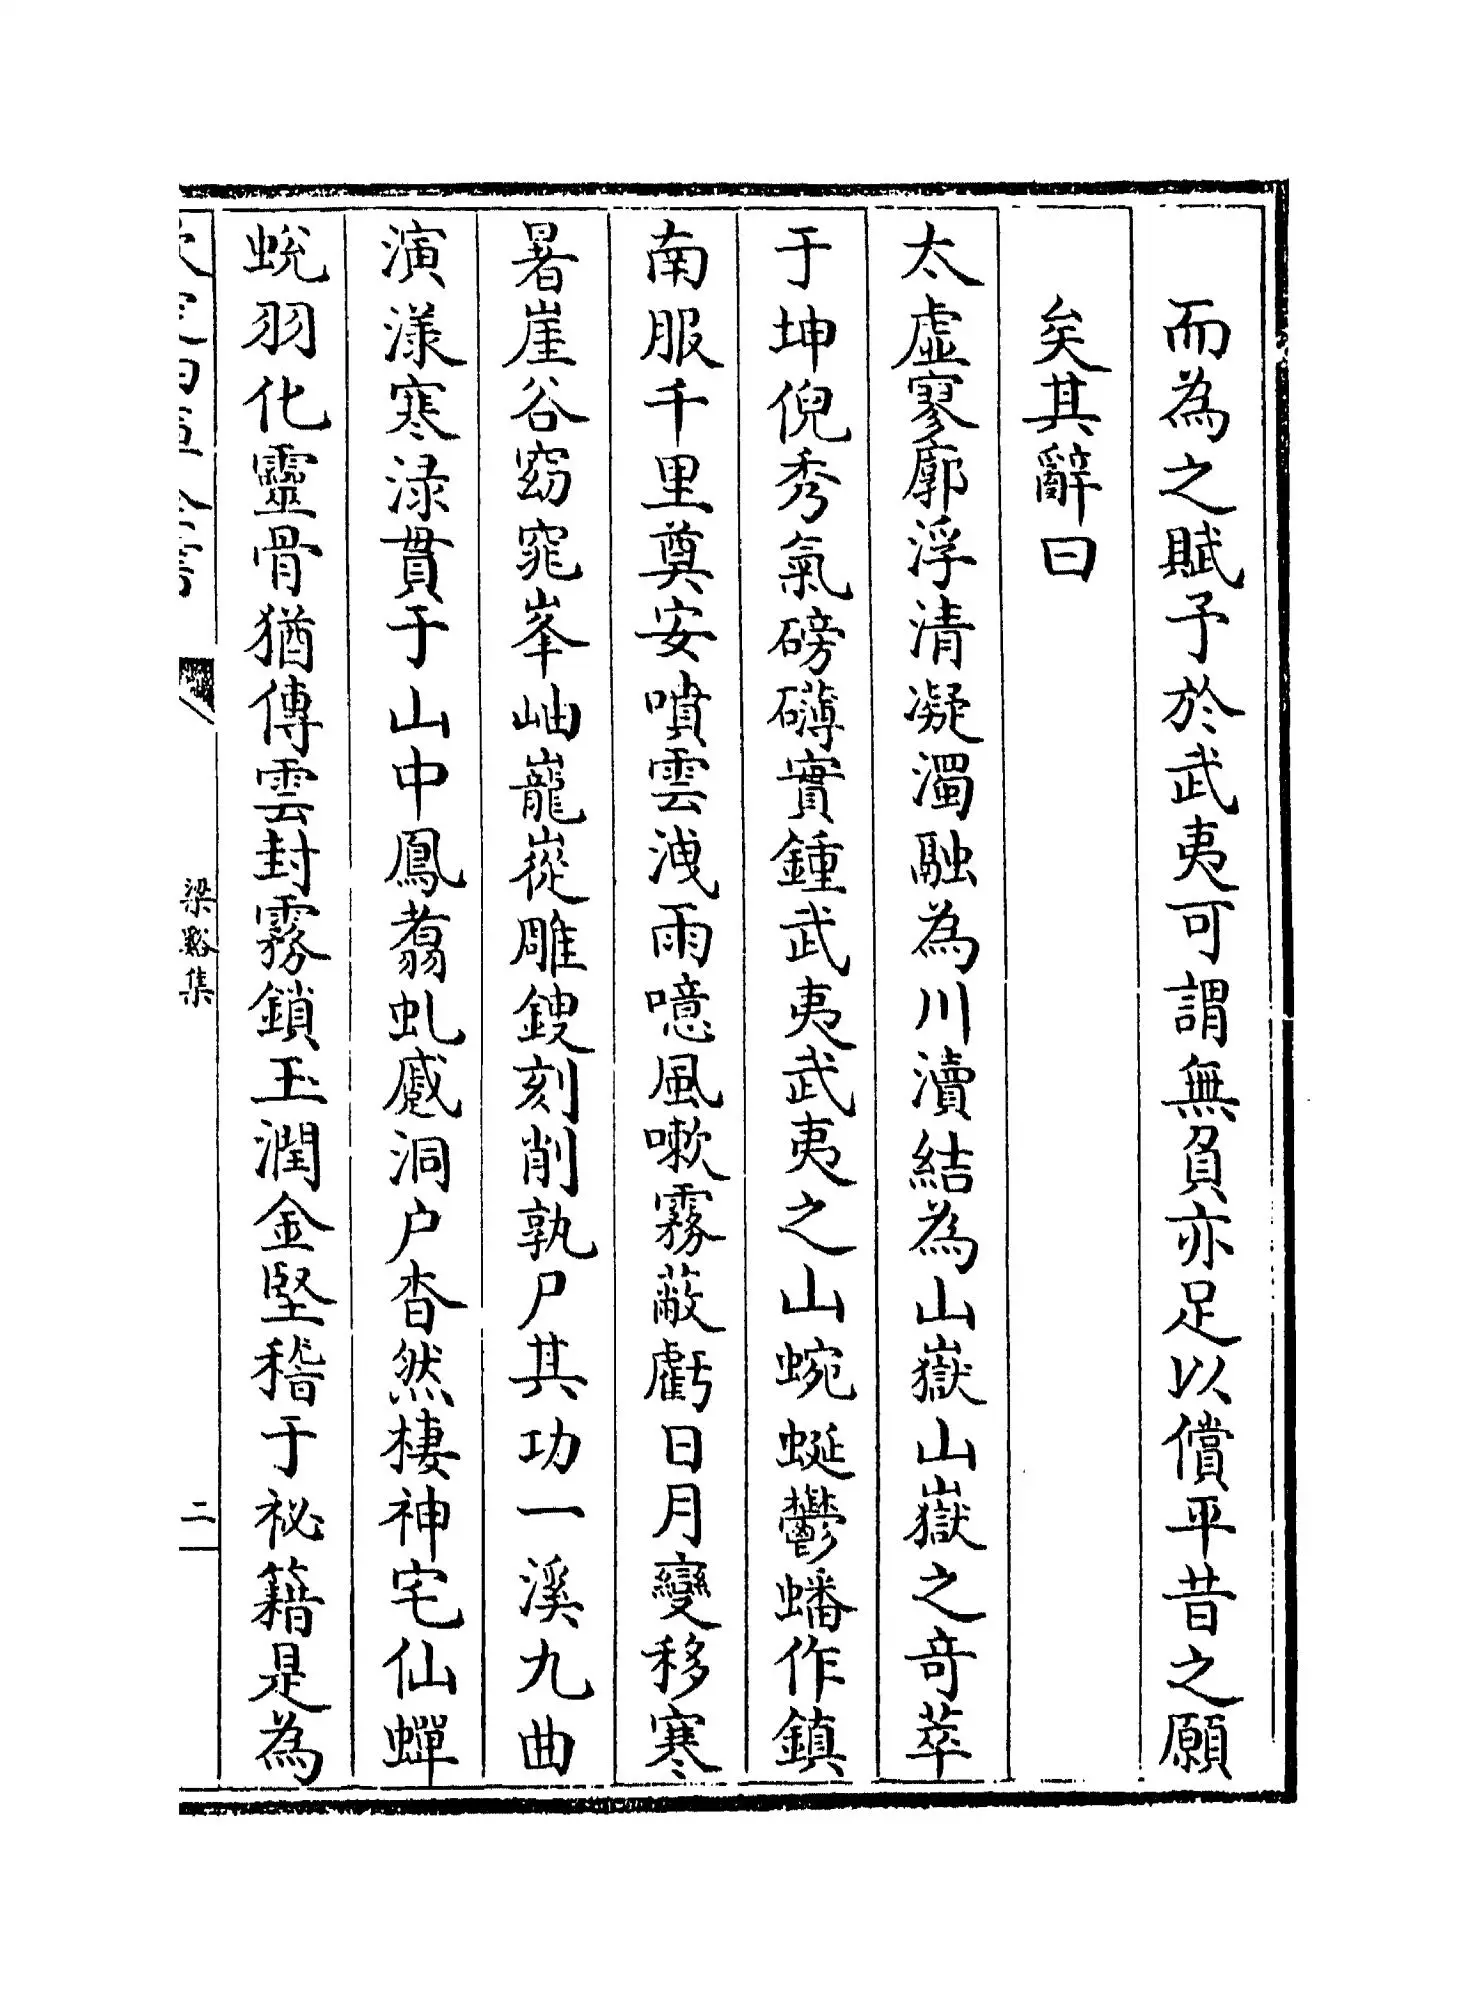 而為之賦予於武夷可謂無負亦足以償平昔之願
矣其辭曰
太虛寥廓浮清凝濁融為川瀆結為山嶽山嶽之奇萃
于坤倪秀氣磅礴實鍾武夷武夷之山蜿蜒鬱蟠作鎮
南服千里奠安噴雲洩雨噫風嗽霧蔽虧日月變移寒
暑崖谷窈窕峯岫巃嵸雕鎪刻削孰尸其功一溪九曲
演漾寒渌貫于山中鳳翥虬蹙洞户杳然棲神宅仙蟬
蛻羽化靈骨猶傳雲封霧鎖玉潤金堅稽于祕籍是為
梁谿集
二